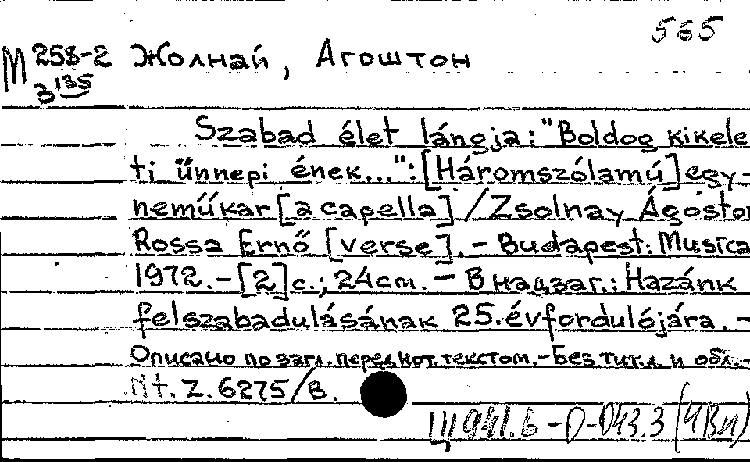 565
М 258-2 Жолнай, Агоштон
З 135
Szabad élet lángja: "Boldog kikele
ti ünnepi ének...": [Háromszólamú] egy-
neműkar [a capella] / Zsolnay Ágosto
Rossa Ernő [verse]. - Budapest: Musica
1972. - [2] с.; 24 см. - В надзаг.: Hazánk
felszabadulásának 25. évfordulójára. -
Описано по загл. перед нот. текстом. - Без тит.л. и обл. -
Nt. Z. 6275/B.
Щ 941.6-D-D43.3 (4Вн)